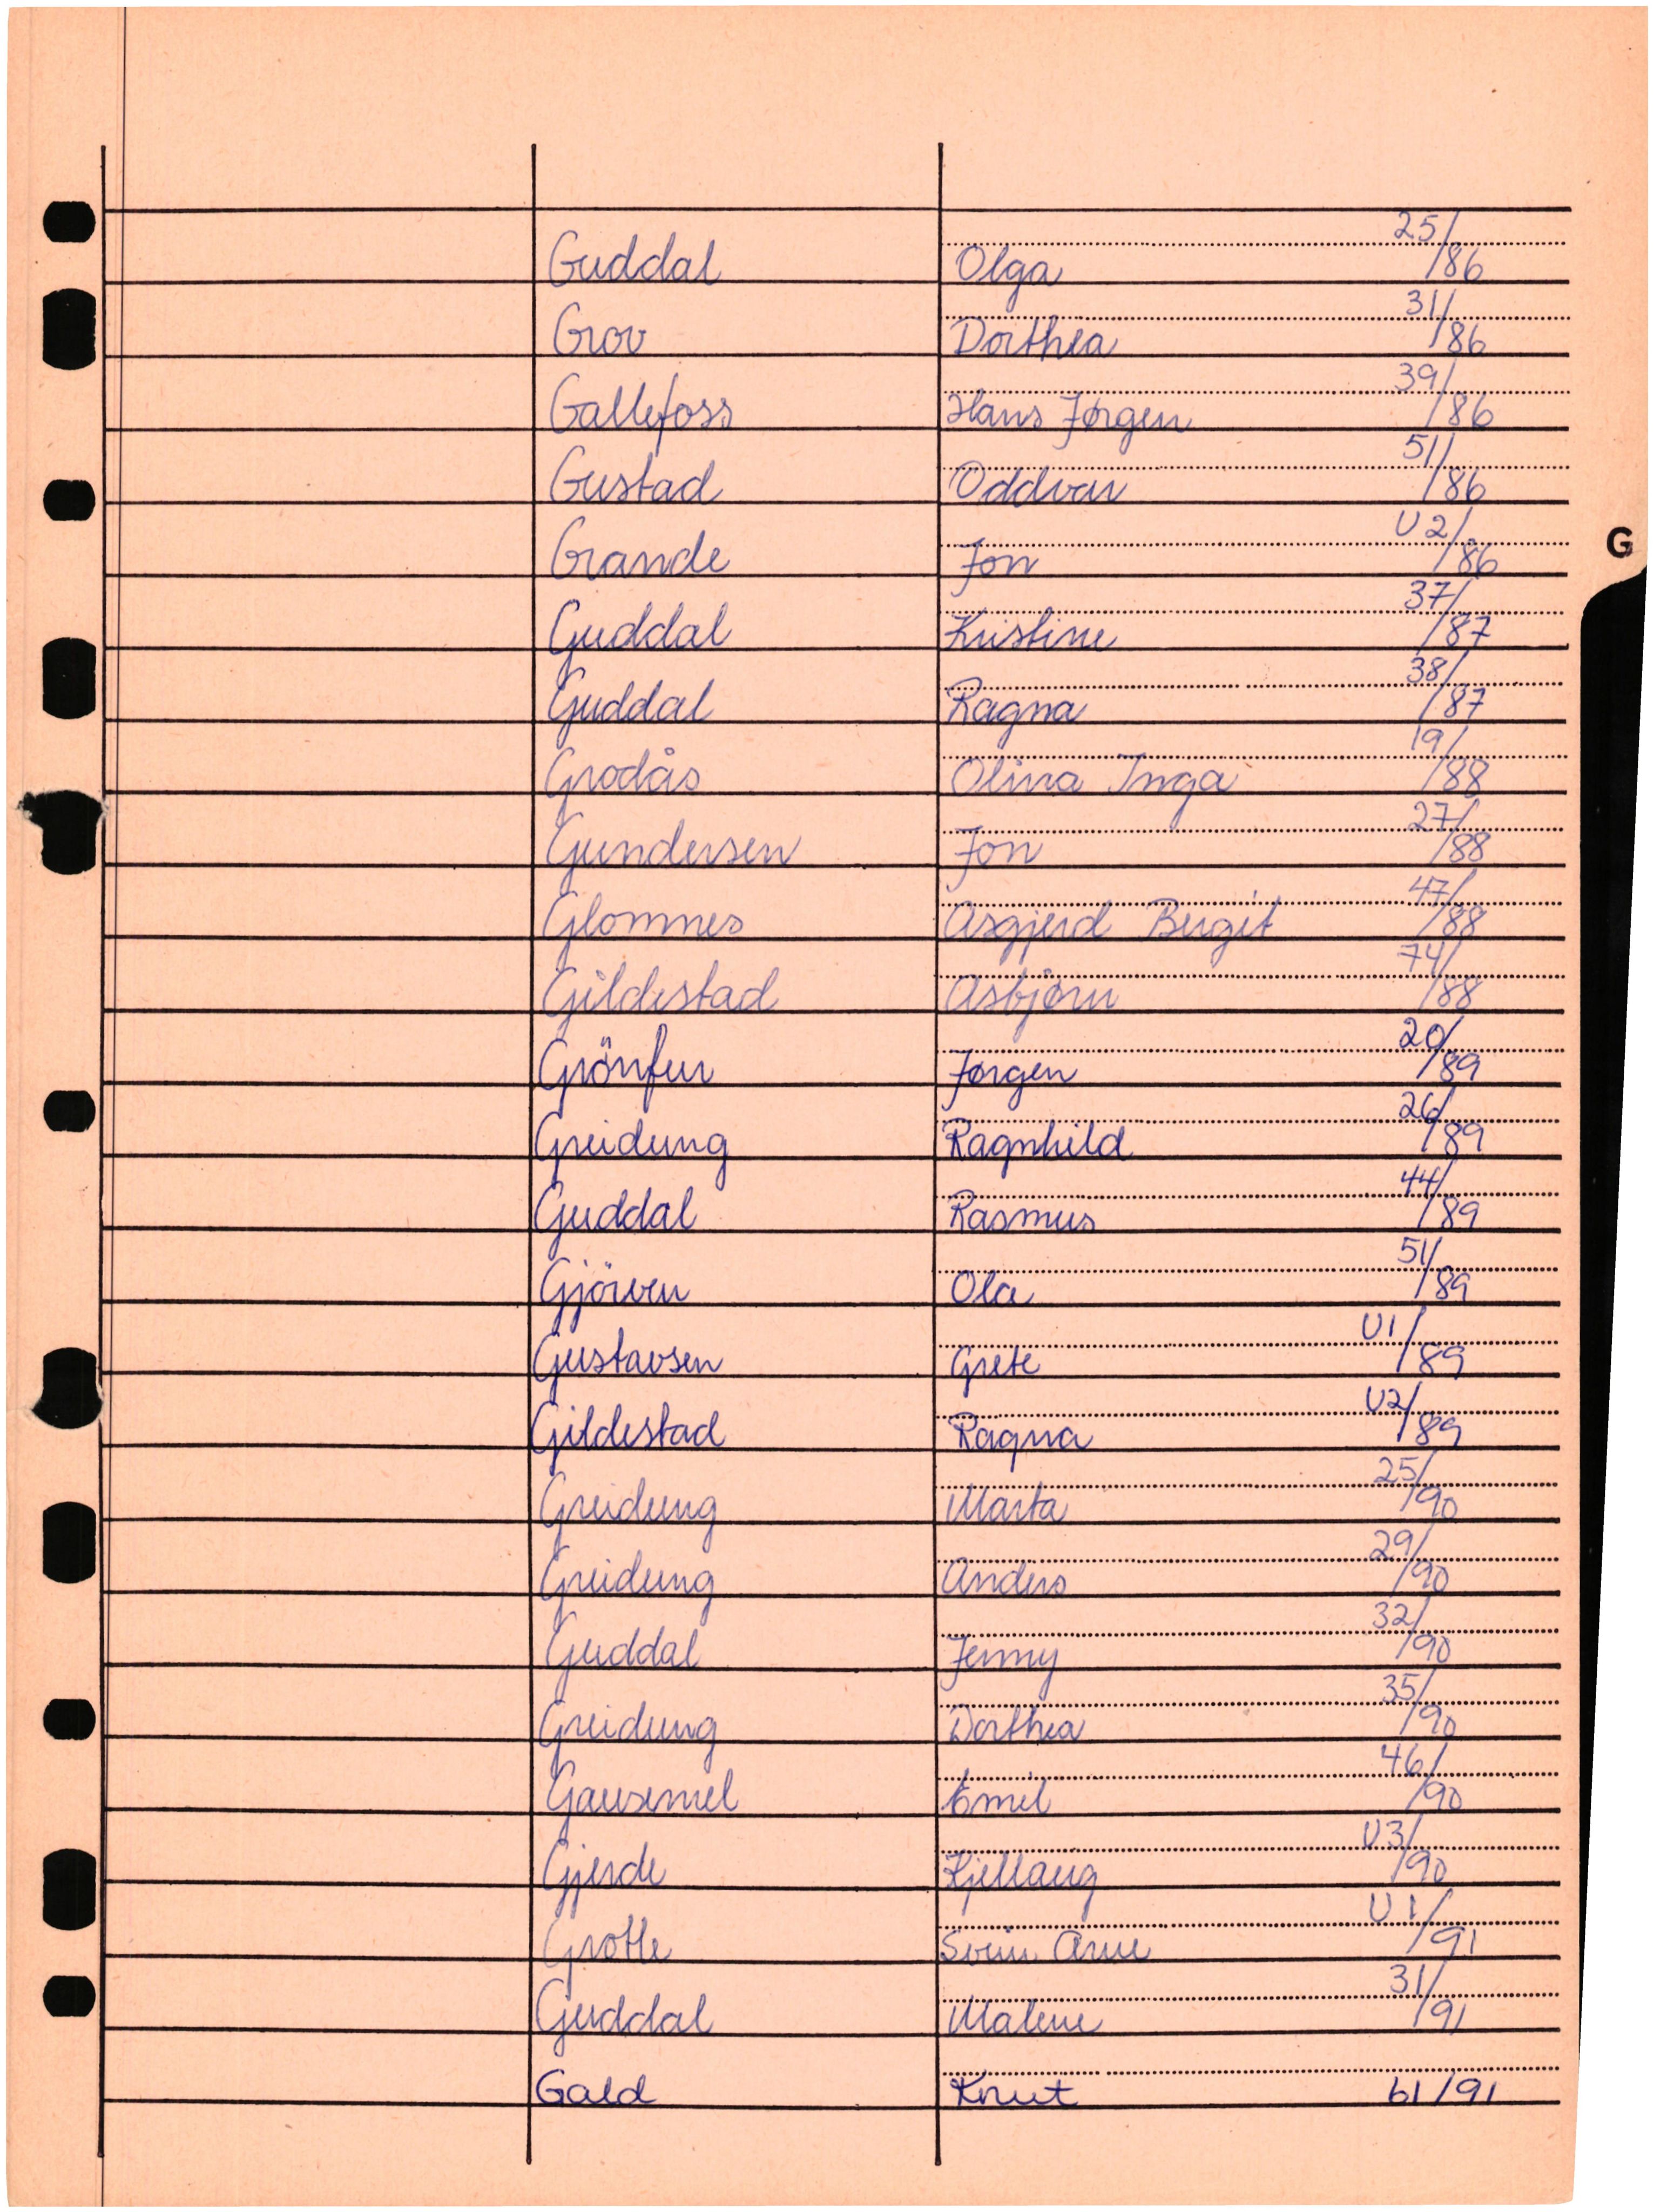 Guddal Olga 25/86
Grov Dorthea 31/86
Gallefoss Hans Jørgen 39/86
Gustad Oddvar 51/86
Grande Jon U2/86
G
Guddal Kristine 37/87
Guddal Ragna 38/87
Grodås Olina Inga 19/88
Gundersen Jon 27/88
Glomnes Asgjerd Bergit 47/88
Gildestad Asbjørn 74/88
Grönfur Jørgen 20/89
Greidung Ragnhild 26/89
Guddal Rasmus 44/89
Gjörven Ola 51/89
Gustavsen Grete U1/89
Gildestad Ragna U2/89
Greidung Marta 25/90
Greidung Anders 29/90
Guddal Jenny 32/90
Greidung Dorthea 35/90
Gausemel Emil 46/90
Gjerde Kjellaug U3/90
Grotle Svein Arne U1/91
Guddal Malene 31/91
Gald Knut 61/91